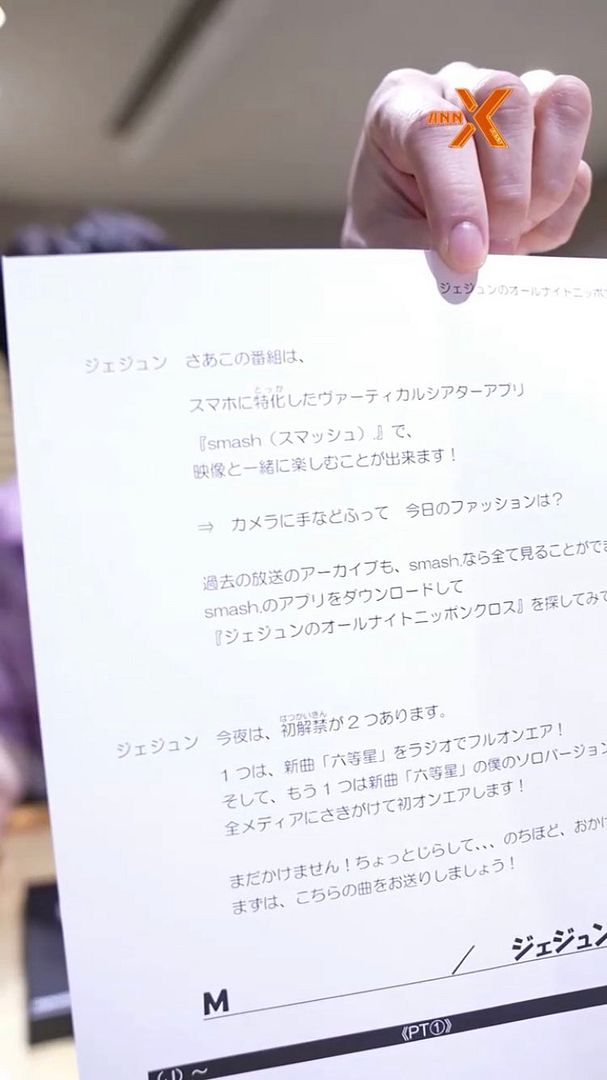 ANN X
ジェジュンのオールナイトニッポン
ジェジュン さあこの番組は、
とっか
スマホに特化したヴァーティカルシアターアプリ
『smash（スマッシュ）.』で、
映像と一緒に楽しむことが出来ます！
⇒ カメラに手などふって 今日のファッションは？
過去の放送のアーカイブも、smash.なら全て見ることができ
smash.のアプリをダウンロードして
『ジェジュンのオールナイトニッポンクロス』を探してみて
はつかいきん
ジェジュン 今夜は、初解禁が２つあります。
１つは、新曲「六等星」をラジオでフルオンエア！
そして、もう１つは新曲「六等星」の僕のソロバージョン
全メディアにさきがけて初オンエアします！
まだかけません！ちょっとじらして、、、のちほど、おかけ
まずは、こちらの曲をお送りしましょう！
M / ジェジュン
《PT①》